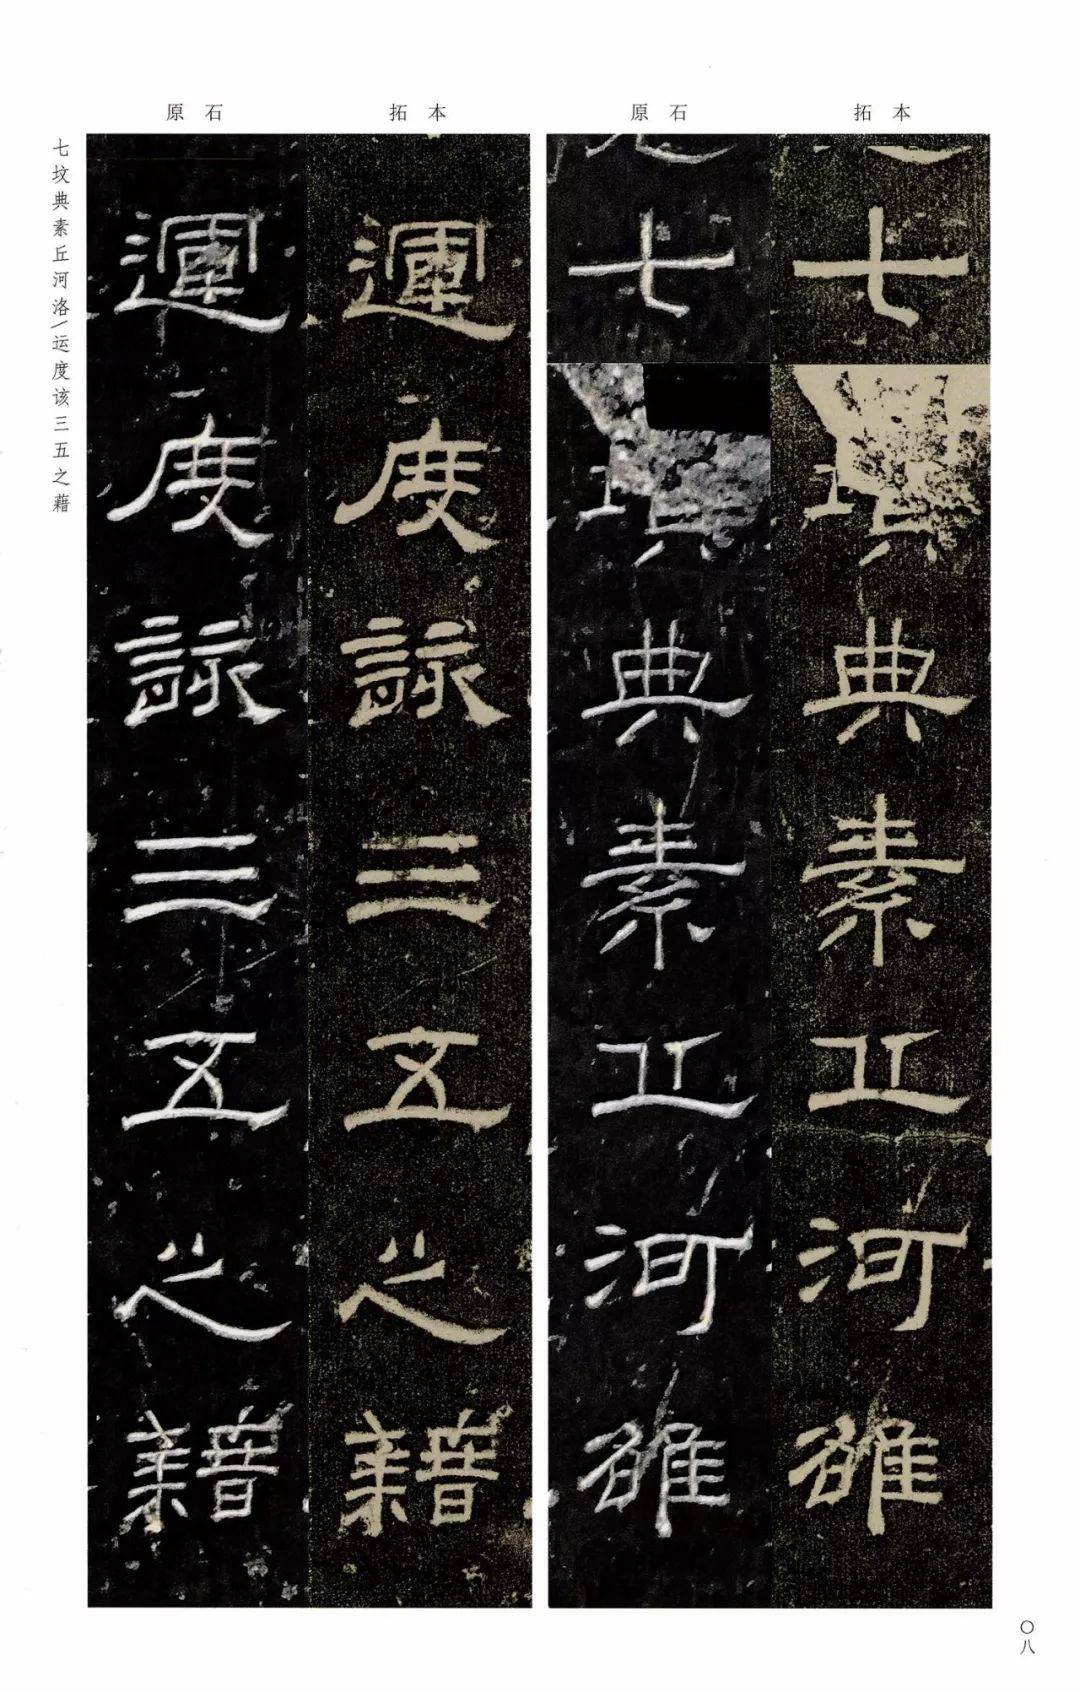 原石 拓本 原石 拓本
七典素丘河雒
七典素丘河雒
運度該三五之藉
運度該三五之藉
七坟典素丘河洛/运度该三五之藉
〇八